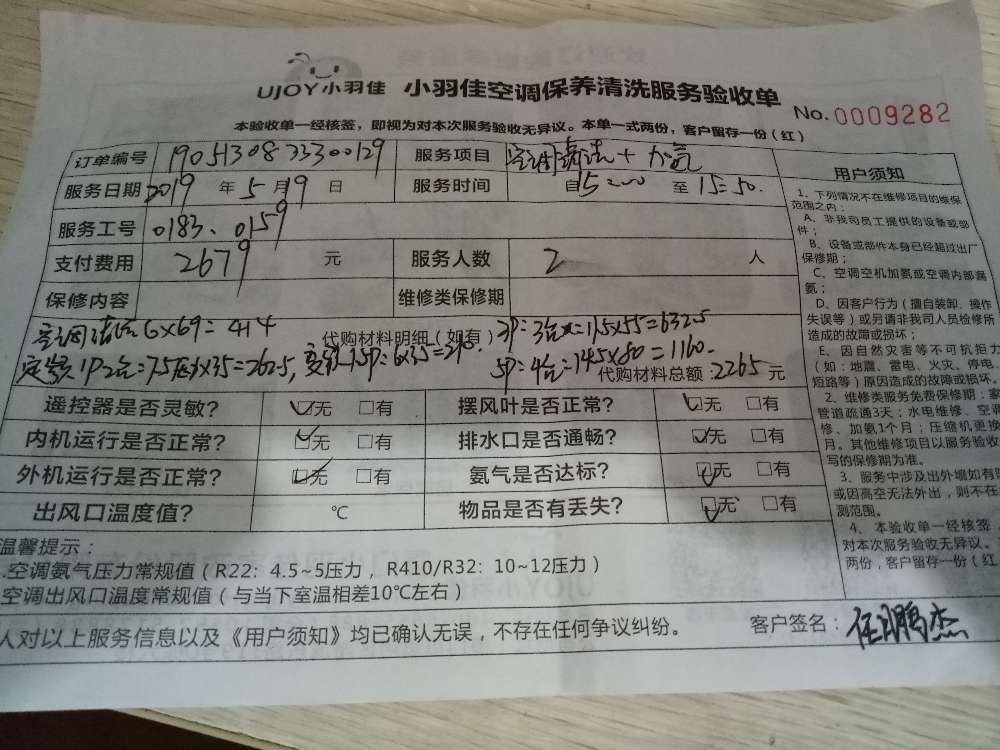 UJOY小羽佳 小羽佳空调保养清洗服务验收单
No. 0009282
本验收单一经核签，即视为对本次服务验收无异议。本单一式两份，客户留存一份（红）
订单编号 服务项目 空调清洗+加氨
服务日期 2019 年 5 月 19 日 服务时间 自 15:00 至 15:50.
服务工号 0183、0159
支付费用 2679 元 服务人数 2 人
保修内容 维修类保修期
空调清洗6x69=414 代购材料明细（如有） 3P=3台x=11.5x55=632.5
1P2台=7.5 x35=262.5, 1.5P=6x35=210. 5P=4台=14.5x80=1160.
代购材料总额:2265 元
遥控器是否灵敏? ☑无 □有 摆风叶是否正常? ☑无 □有
内机运行是否正常? ☑无 □有 排水口是否通畅? ☑无 □有
外机运行是否正常? ☑无 □有 氨气是否达标? ☑无 □有
出风口温度值? ℃ 物品是否有丢失? ☑无 □有
温馨提示：
.空调氨气压力常规值（R22：4.5~5压力，R410/R32：10~12压力）
空调出风口温度常规值（与当下室温相差10℃左右）
人对以上服务信息以及《用户须知》均已确认无误，不存在任何争议纠纷。 客户签名： 任鹏杰
用户须知
1、下列情况不在维修项目的维保
范围之内：
A、非我司员工提供的设备或部
件；
B、设备或部件本身已经超过出厂
保修期；
C、空调空机加氨或空调内部漏
氨；
D、因客户行为（擅自装卸、操作
失误等）或另请非我司人员检修所
造成的故障或损坏；
E、因自然灾害等不可抗拒力
（如：地震、雷电、火灾、停电、
短路等）原因造成的故障或损坏。
2、维修类服务免费保修期：家
管道疏通3天；水电维修、空调
修、加氨1个月；压缩机更换
月。其他维修项目以服务验收
写的保修期为准。
3、服务中涉及出外墙如有
或因高空无法外出，则不在
测范围。
4、本验收单一经核签，
对本次服务验收无异议。
两份，客户留存一份（红